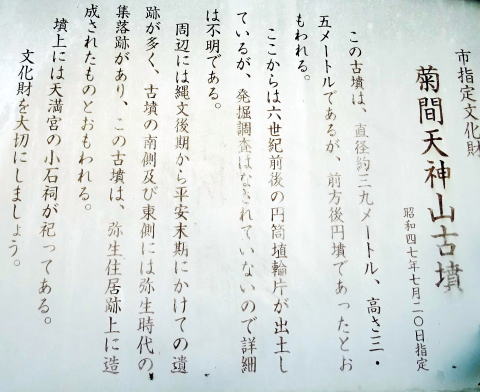 市指定文化財
菊間天神山古墳
昭和四七年七月二〇日指定
この古墳は、直径約三九メートル、高さ三・
五メートルであるが、前方後円墳であったとお
もわれる。
ここからは六世紀前後の円筒埴輪片が出土し
ているが、発掘調査はなされていないので詳細
は不明である。
周辺には縄文後期から平安末期にかけての遺
跡が多く、古墳の南側及び東側には弥生時代の
集落跡があり、この古墳は、弥生住居跡上に造
成されたものとおもわれる。
墳上には天満宮の小石祠が祀ってある。
文化財を大切にしましょう。